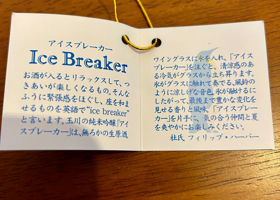 アイスブレーカー
Ice Breaker
お酒が入るとリラックスして、つ
きあいが楽しくなるもの。そんな
ふうに緊張感をほぐし、座を和ま
せるものを英語で“ice breaker”
と言います。玉川の純米吟醸「アイ
スブレーカー」は、無ろかの生原酒
ワイングラスに氷を入れ、「アイス
ブレーカー」を注ぐと、清涼感のあ
る冷気がグラスから立ち昇ります。
氷がグラスに触れて奏でる、風鈴の
ように涼しげな音色。氷が融けるに
したがって、最後まで豊かな変化を見
せる香りと風味。「アイスブレーカ
ー」を片手に、気の合う仲間と夏
を爽やかにお楽しみください。
杜氏 フィリップ・ハーパー